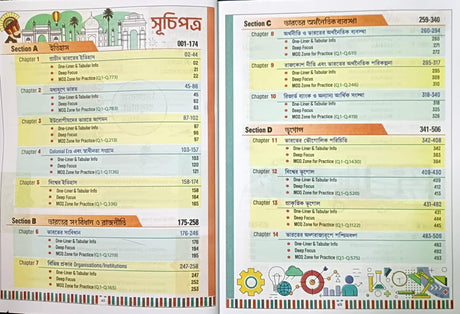 সূচিপত্র
Section A ইতিহাস 001-174
Chapter 1 প্রাচীন ভারতের ইতিহাস 02-44
One-Liner & Tabular Info 02
Deep Focus 21
MCQ Zone for Practice 22
Chapter 2 মধ্যযুগে ভারত 45-86
One-Liner & Tabular Info 45
Deep Focus 62
MCQ Zone for Practice 63
Chapter 3 ইউরোপীয়দের ভারতে আগমন 87-102
One-Liner & Tabular Info 87
Deep Focus
MCQ Zone for Practice 97
Chapter 4 Colonial Era এবং স্বাধীনতা সংগ্রাম 103-157
One-Liner & Tabular Info 103
Deep Focus 120
MCQ Zone for Practice 121
Chapter 5 বিশ্বের ইতিহাস 158-174
One-Liner & Tabular Info 158
Deep Focus 164
MCQ Zone for Practice 165
Section B ভারতের সংবিধান ও রাজনীতি 175-258
Chapter 6 ভারতের সংবিধান 176-246
One-Liner & Tabular Info 176
Deep Focus 194
MCQ Zone for Practice 195
Chapter 7 বিভিন্ন প্রকার Organisations/Institutions 247-258
One-Liner & Tabular Info 247
Deep Focus 252
MCQ Zone for Practice 253
Section C ভারতের অর্থনৈতিক ব্যবস্থা 259-340
Chapter 8 অর্থনীতি ও ভারতের অর্থনৈতিক ব্যবস্থা 260-294
One-Liner & Tabular Info 260
Deep Focus
MCQ Zone for Practice 271
Chapter 9 রাজকোষ নীতি এবং ভারতের অর্থনৈতিক পরিকল্পনা 295-317
One-Liner & Tabular Info 295
Deep Focus
MCQ Zone for Practice
Chapter 10 রিজার্ভ ব্যাংক ও অন্যান্য আর্থিক সংস্থা 318-340
One-Liner & Tabular Info 318
Deep Focus
MCQ Zone for Practice
Section D ভূগোল 341-506
Chapter 11 ভারতের ভৌগোলিক পরিচিতি 342-408
One-Liner & Tabular Info 342
Deep Focus 363
MCQ Zone for Practice 364
Chapter 12 বিশ্বের ভূগোল 409-430
One-Liner & Tabular Info 409
Deep Focus
MCQ Zone for Practice 415
Chapter 13 প্রাকৃতিক ভূগোল 431-482
One-Liner & Tabular Info 431
Deep Focus 444
MCQ Zone for Practice 445
Chapter 14
One-Liner & Tabular Info 483
Deep Focus
MCQ Zone for Practice 493